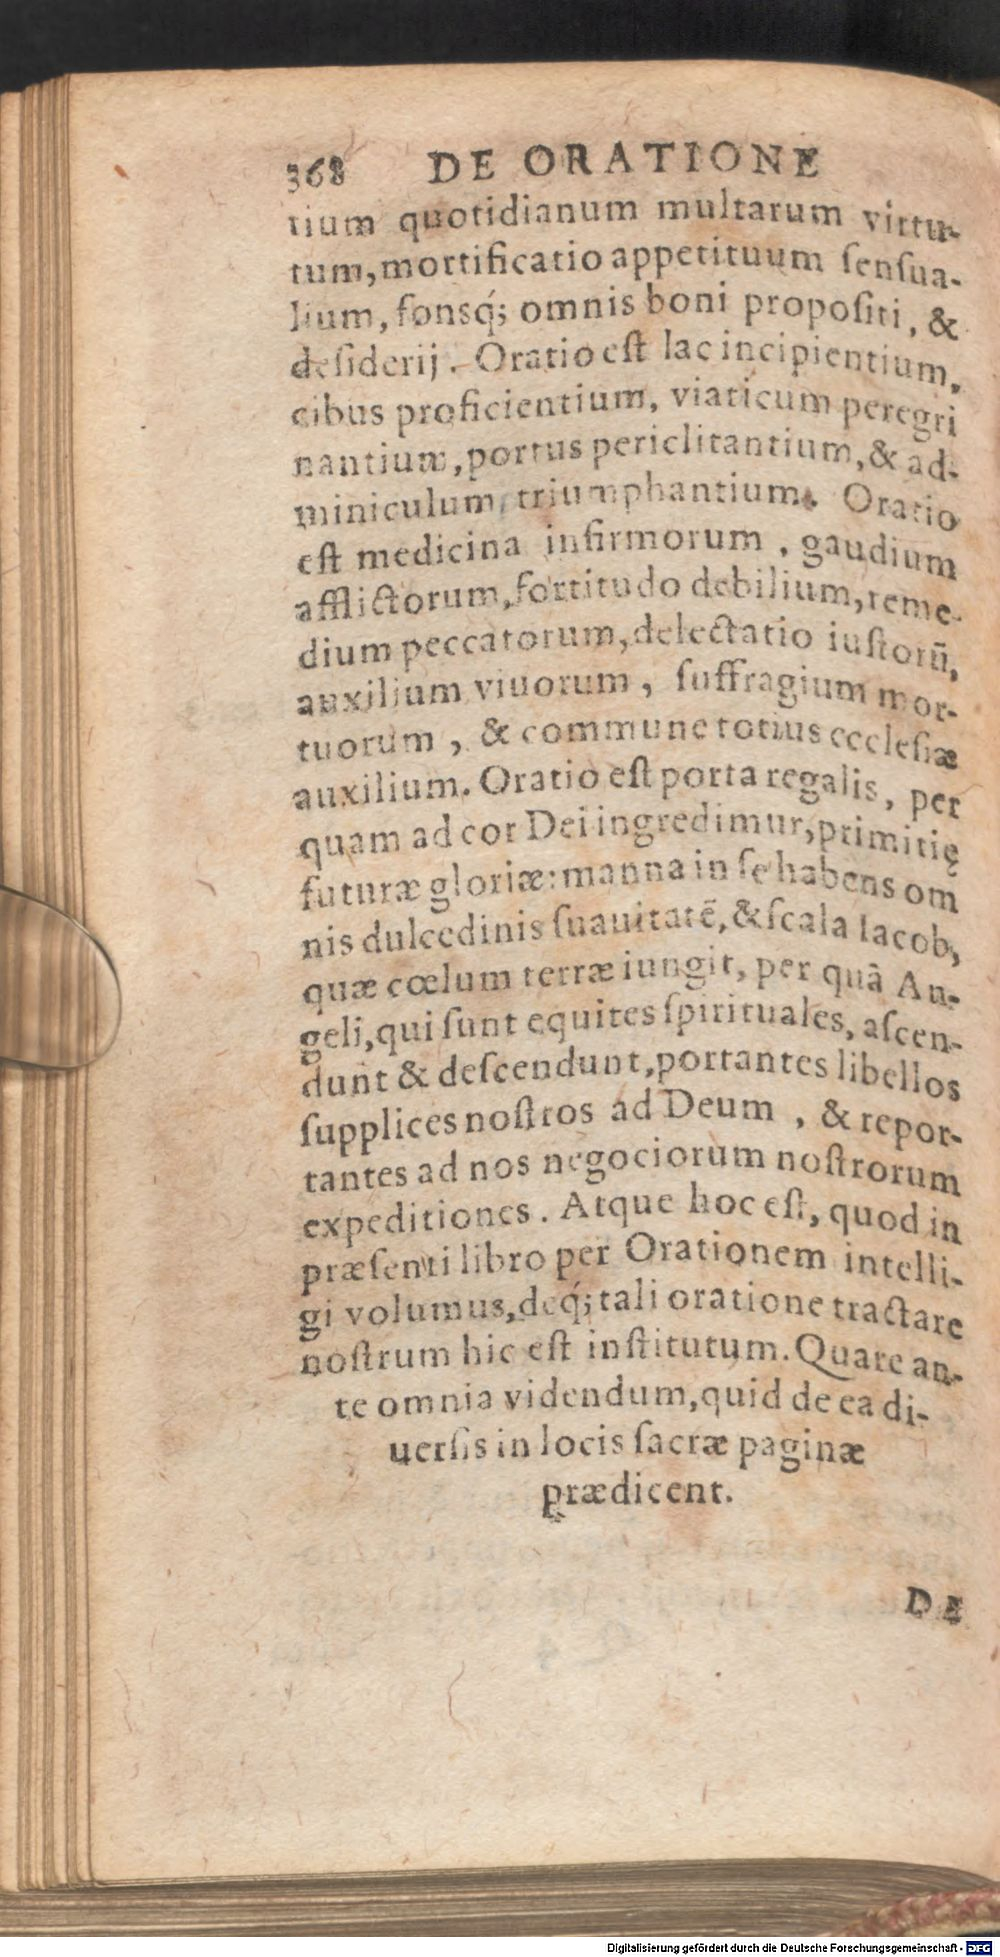 368 DE ORATIONE
tium quotidianum multarum virtu-
tum, mortificatio appetituum ſenſua-
lium, fonsq́; omnis boni propoſiti, &
deſiderij. Oratio eſt lac incipientium,
cibus proficientium, viaticum peregri
nantium, portus periclitantium, & ad-
miniculum triumphantium. Oratio
eſt medicina infirmorum, gaudium
afflictorum, fortitudo debilium, reme-
dium peccatorum, delectatio iuſtorū,
auxilium viuorum, ſuffragium mor-
tuorum, & commune totius eccleſiæ
auxilium. Oratio eſt porta regalis, per
quam ad cor Dei ingredimur, primitię
futuræ gloriæ: manna in ſe habens om
nis dulcedinis ſuauitatē, & ſcala Iacob,
quæ cœlum terræ iungit, per quā An-
geli, qui ſunt equites ſpirituales, aſcen-
dunt & deſcendunt, portantes libellos
ſupplices noſtros ad Deum, & repor-
tantes ad nos negociorum noſtrorum
expeditiones. Atque hoc eſt, quod in
præſenti libro per Orationem intelli-
gi volumus, deq́; tali oratione tractare
noſtrum hic eſt inſtitutum. Quare an-
te omnia videndum, quid de ea di-
uerſis in locis ſacræ paginæ
prædicent.
DE
Digitalisierung gefördert durch die Deutsche Forschungsgemeinschaft - DFG